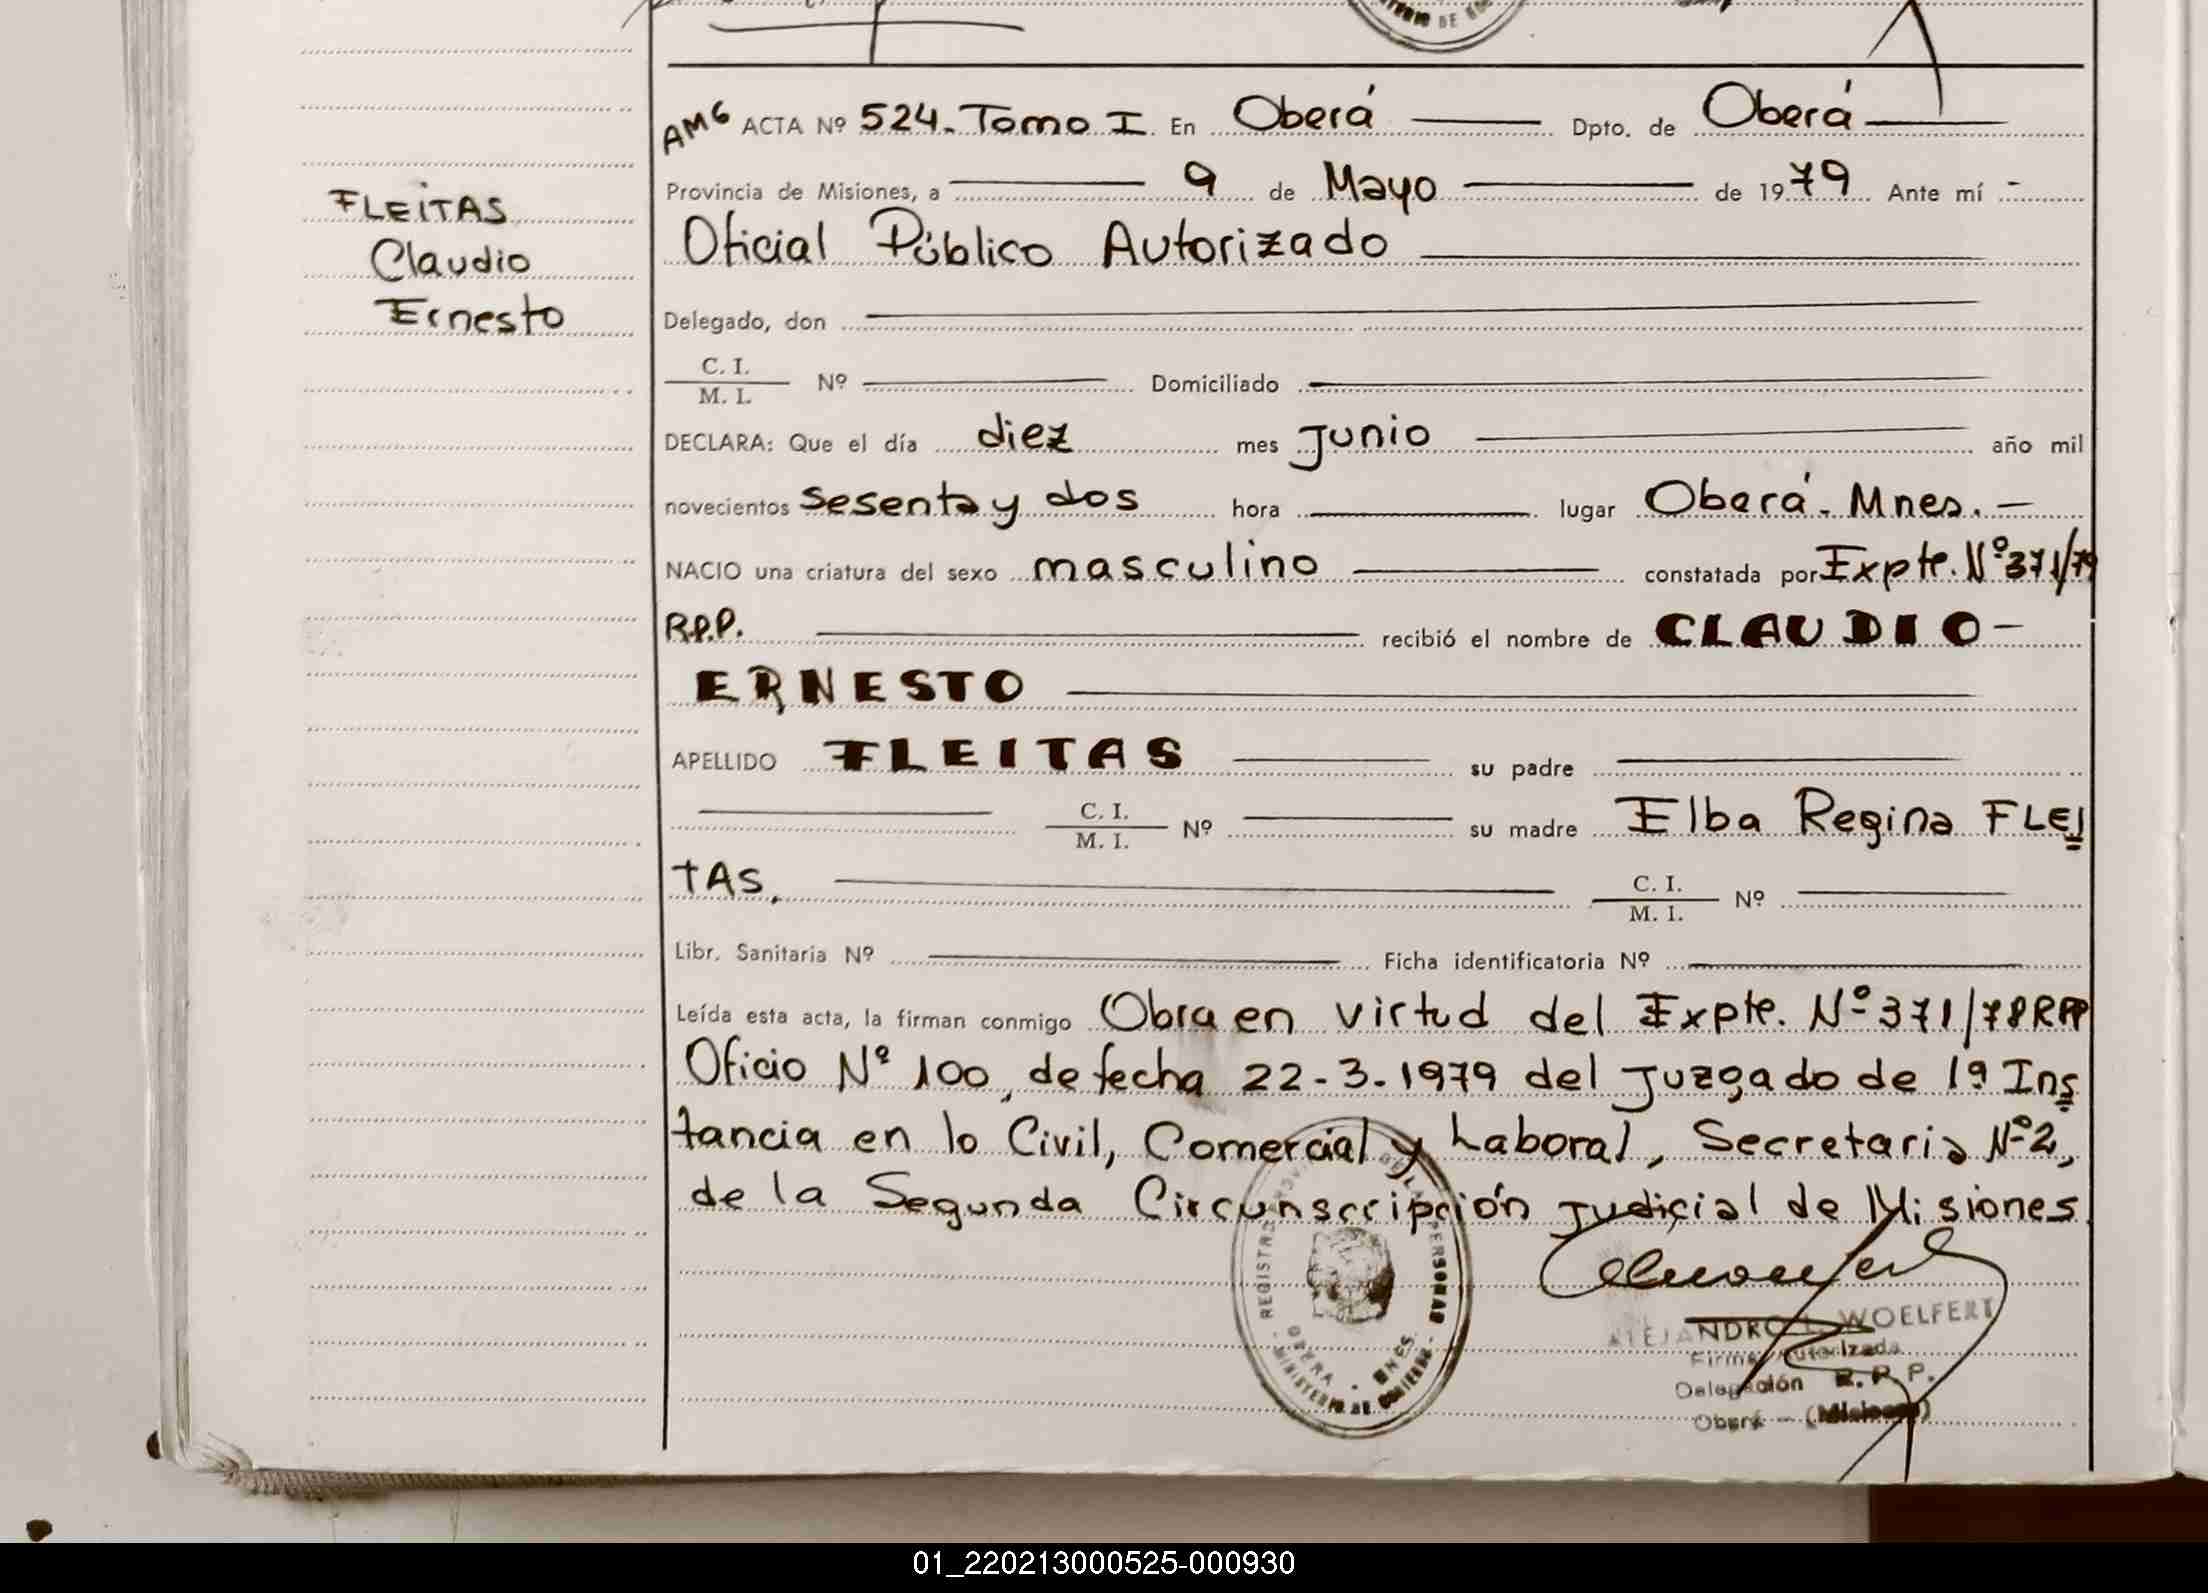 AMG ACTA Nº 524. Tomo I. En Oberá Dpto. de Oberá
Provincia de Misiones, a 9 de Mayo de 1979 Ante mí
Oficial Público Autorizado
Delegado, don
C. I.
M. I. Nº Domiciliado
DECLARA: Que el día diez mes Junio año mil
novecientos sesenta y dos hora lugar Oberá. Mnes.
NACIO una criatura del sexo masculino constatada por Expte. Nº 371/79
R.P.P. recibió el nombre de CLAUDIO
ERNESTO
APELLIDO FLEITAS su padre
C. I.
M. I. Nº su madre Elba Regina FLEI
TAS.
C. I.
M. I. Nº
Libr. Sanitaria Nº Ficha identificatoria Nº
Leída esta acta, la firman conmigo Obra en virtud del Expte. Nº 371/78 RPP
Oficio Nº 100, de fecha 22-3-1979 del Juzgado de 1ª Ins
tancia en lo Civil, Comercial y Laboral, Secretaria Nº 2,
de la Segunda Circunscripción Judicial de Misiones.
FLEITAS
Claudio
Ernesto
REGISTRO PROV. DE LAS PERSONAS
OBERA - MNES.
MINISTERIO DE GOBIERNO
ALEJANDRO L. WOELFERT
Firma Autorizada
Delegación R. P. P.
Oberá - (Misiones)
01_220213000525-000930